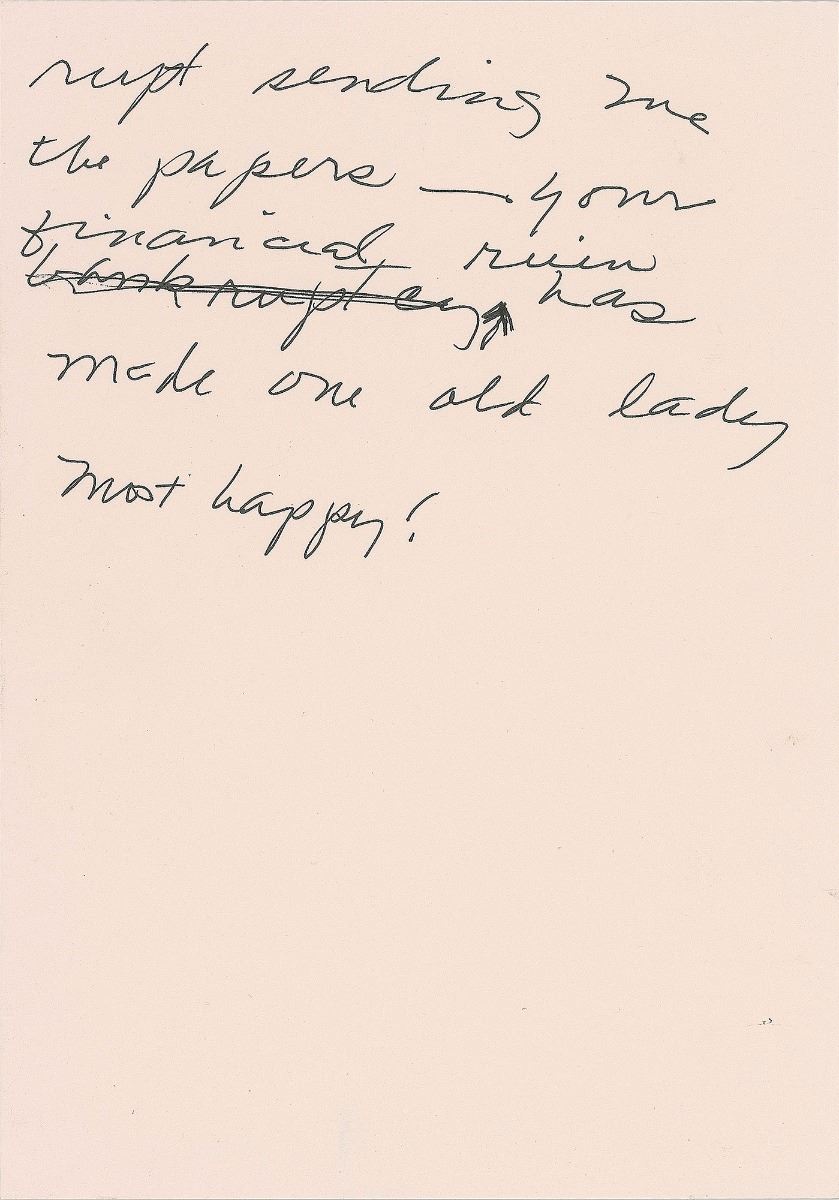 rupt sending me
the papers — your
financial ruin
bankruptcy has
made one old lady
most happy!